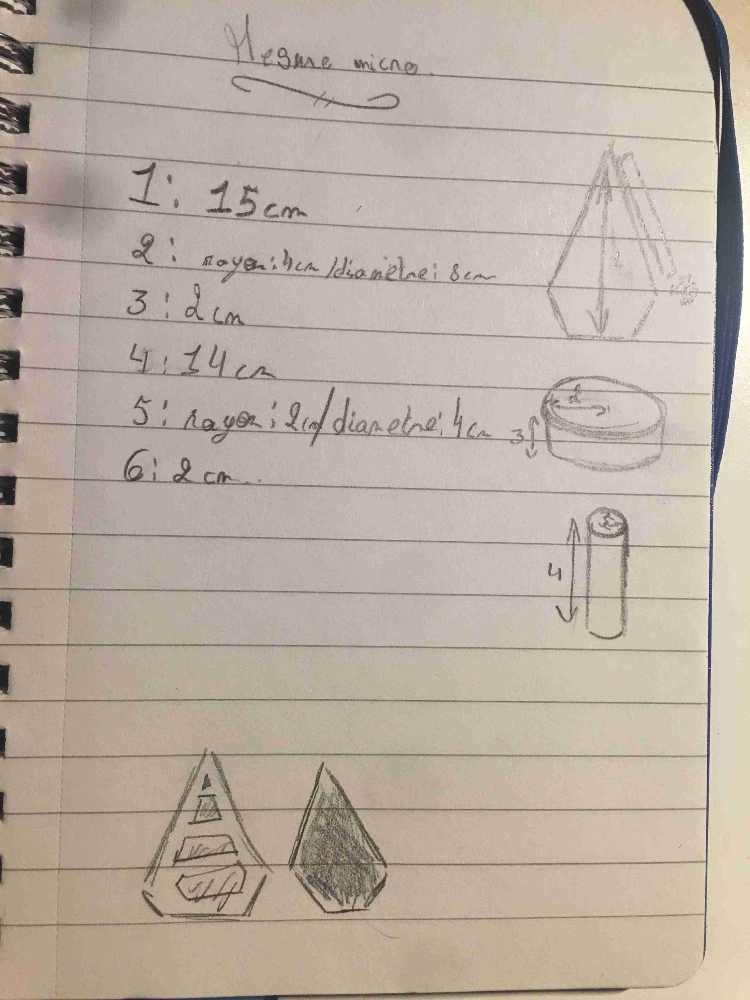 Mesure micro
1: 15cm
2: rayon: 4cm/diamètre: 8cm
3: 2cm
4: 14cm
5: rayon: 2cm/diametre: 4cm
6: 2cm
1
2
3
5
4